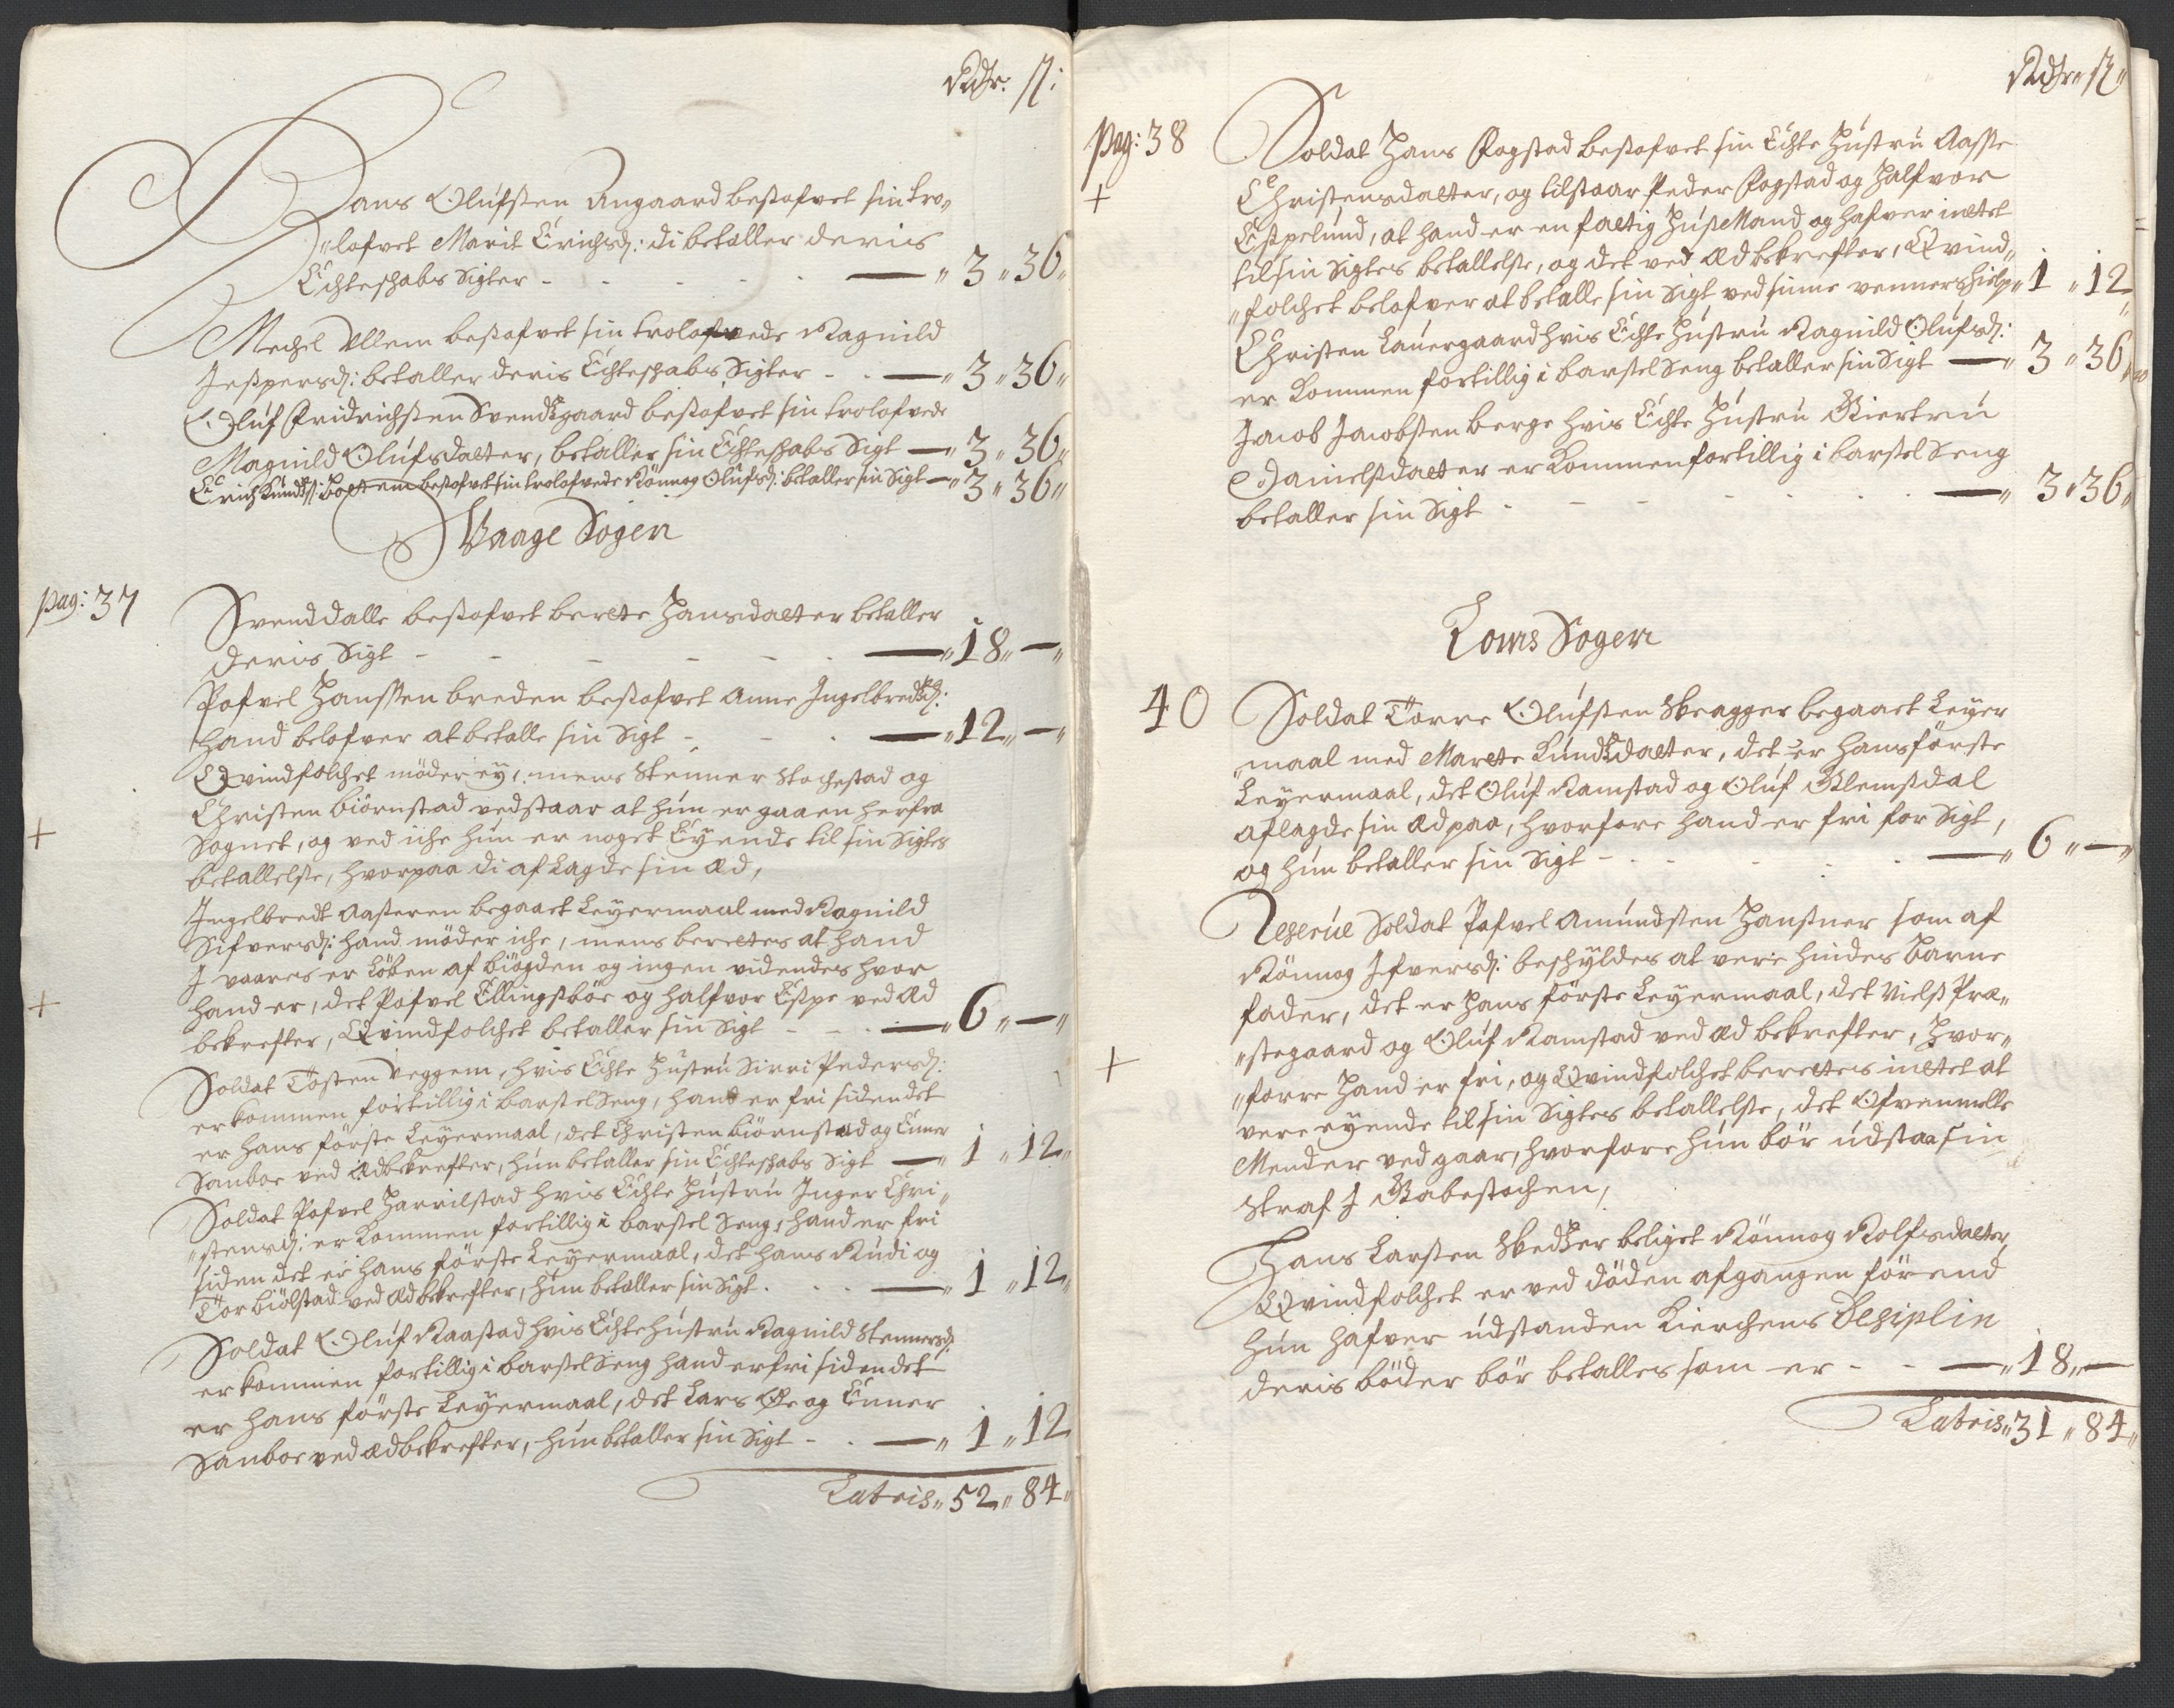 Rdr: ß:
Hans Olúfsten Angaard besofvet sin tro„
„lofvet Marit Erichsd: di betaller deris
Echteschabs Sigter - - - - — „ 3 „ 36 „
Mechel Ullem besofvet sin trolofvede Ragnild
Jespersd: betaller deris Echteschabs Sigter - - — „ 3 „ 36 „
Olúf Fridrichsten Svendsgaard besofvet sin trolofvede
Magnild Olúfsdatter, betaller sin Echteschabs Sigt — „ 3 „ 36 „
Erich Kúndss: besofvet sin trolofvede Rönnog Olúfsd: betaller sin Sigt — „ 3 „ 36 „
Vaage Sogen
pag: 37
Svend dalle besofvet berete Hansdatter betaller
deris Sigt - - - - - - — „ 18 „ — „
Pofvel Hanssen breden besofvet Anne Ingelbredsd:
hand belofver at betalle sin Sigt - - - — „ 12 „ — „
Qvindfolchet möder ey, mens Stenner Stochestad og
Christen biörnstad vedstaar at hún er gaaen herfra
+
Sognet, og ved iche hún er noget Eyende til sin Sigtes
betallelse, hvorpaa di aflagde sin Æd,
Ingelbredt Aasteren begaaet Leyermaal med Ragnild
Sifversd: hand möder iche, mens berettes at hand
I vaares er Löben af biögden og ingen videndes hvor
+
hand er, det Pofvel Ellingsböe og halfvor Espe ved Æd
bekrefter, Qvindfolchet betaller sin Sigt - - - — „ 6 „ — „
Soldat Tosten veggem, hvis Echte Hústrú Sirri Pedersd:
er kommen fortillig i barsel Seng, hand er fri siden det
er hans förste Leyermaal, det Christen biörnstad og Einer
Sanboe ved Æd bekrefter, hún betaller sin Echteschabs Sigt — „ 1 „ 12 „
Soldat Pofvel Harrilstad hvis Echte Hústrú Inger Chri„
„stensd: er kommen fortillig i barsel Seng, hand er fri
siden det er hans förste Leyermaal, det hans Rúdi og
Tor biölstad ved Æd bekrefter, hún betaller sin Sigt . . . — „ 1 „ 12 „
Soldat Olúf Raastad hvis Echte hústrú Ragnild Stennersd:
er kommen fortillig i barsel Seng hand er fri siden det
er hans förste Leyermaal, det Lars Øe og Einer
Sanboe ved Æd bekrefter, hún betaller sin Sigt - . — „ 1 „ 12
Latris „ 52 „ 84 „
Rdr „ ß „
pag: 38
Soldat Hans Fogstad besofvet sin Echte Hústrú Aasse
+
Christensdatter, og tilstaar Peder Fogstad og Halfvor
Espelúnd, at hand er en fattig Húsmand og hafver inttet
til sin Sigtes betallelse, og det ved Æd bekrefter, Qvind„
„folchet belofver at betalle sin Sigt ved sinne venners hielp „ 1 „ 12 „
Christen Laúergaard hvis Echte Hústrú Ragnild Olúfsd:
er kommen fortillig i barsel Seng betaller sin Sigt — „ 3 „ 36 „
Jacob Jacobsten berge hvis Echte Hústrú Giertrú
Danielsdatter er kommen fortillig i barsel Seng
betaller sin Sigt - - - - - — „ 3 „ 36 „
Loms Sogen
40
Soldat Torre Olúfsten Skeagger begaaet Leyer
„maal med Marete Kundsdatter, det er hans förste
Leyermaal, det Olúf Ramstad og Olúf Glemsdal
aflagde sin Æd paa, hvorfore hand er fri for Sigt,
og hún betaller sin Sigt - . . . . . — „ 6 „ — „
Reserúe Soldat Pofvel Amúndsten Haústner som af
Rönnog Ifversd: beschyldes at vere hindes Barne
fader, det er hans förste Leyermaal, det Niels Præ„
„stegaard og Olúf Ramstad ved Æd bekrefter, hvor„
+
„forre hand er fri, og Qvindfolchet berettes inttet at
vere eyende til sin Sigtes betallelse, det Ofvenmelte
Mender vedgaar, hvorfore hún bör údstaa sin
Straf I Gabestochen,
Hans Larsten Skedser beliget Rönnog Rolfsdatter
Qvindfolchet er ved döden afgangen förend
hún hafver údstanden Kierchens Desiplin
deris böder bör betalles som er - - — „ 18 „ —
Latris „ 31 „ 84 „